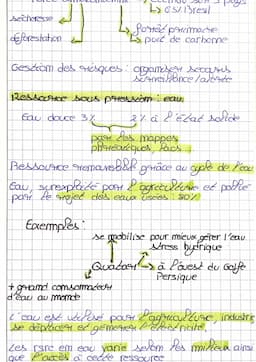 → CSI/Bresil
sécheresse
déforestation
Forêt primaire
puit de carbonne
Gestion des risques : organiser secours
surveillance/alerte
Ressource sous pression : eau.
Eau douce 3% 2% à l'état solide
par les nappes
phréatiques, lacs
Ressource renouvelable grâce au cycle de l'eau
Eau, surexploité pour l'agriculture et polluée
par le rejet des eaux usées : 80%
Exemples :
se mobilise pour mieux gérer l'eau
stress hydrique
Quatar → à l'ouest du Golfe
Persique
+ grand consommateur
d'eau au monde
L'eau est utilisé pour l'agriculture, industrie
se déplacer et générer l'électricité.
Les rsrc en eau varie selon les milieux ainsi
que l'accès à cette ressource